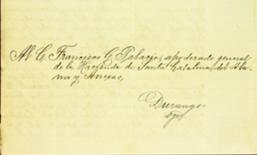 Al C. Francisco G. Palacio, apoderado general
de la Hacienda de Santa Catalina del Ala-
mo y Anexas,
Durango